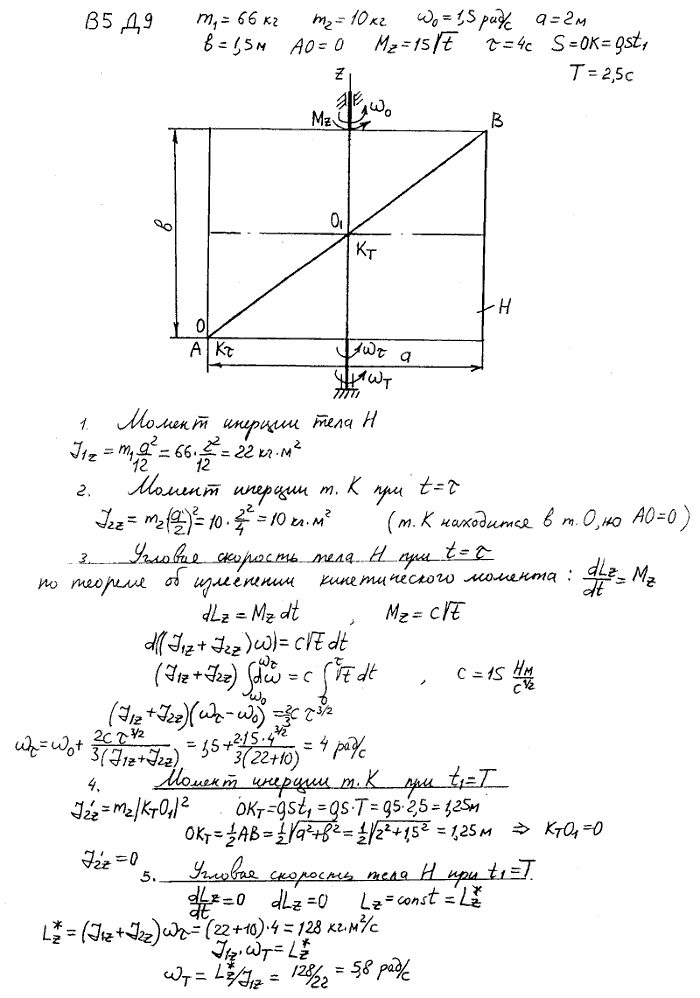 В5 Д9 m₁ = 66 кг m₂ = 10 кг ω₀ = 1,5 рад/с a = 2 м
в = 1,5 м AO = 0 Mz = 15√t τ = 4с S = OK = 0,5t₁
T = 2,5с
z
Mz ω₀
B
в
O₁
Kт
H
O
A Kτ
ωτ
a
ωT
1. Момент инерции тела H
J₁z = m₁ a²/12 = 66·2²/12 = 22 кг·м²
2. Момент инерции т. K при t = τ
J₂z = m₂(a/2)² = 10·2²/4 = 10 кг·м² (т. K находится в т. O, но AO = 0)
3. Угловая скорость тела H при t = τ
по теореме об изменении кинетического момента: dLz/dt = Mz
dLz = Mz dt , Mz = c√t
d((J₁z + J₂z)ω) = c√t dt
(J₁z + J₂z) ∫ω₀^ωτ dω = c ∫₀^τ √t dt , c = 15 Нм/с^1/2
(J₁z + J₂z)(ωτ - ω₀) = 2/3 c τ^3/2
ωτ = ω₀ + 2cτ^3/2 / 3(J₁z + J₂z) = 1,5 + 2·15·4^3/2 / 3(22+10) = 4 рад/с
4. Момент инерции т. K при t₁ = T
J₂z' = m₂|KтO₁|² OKт = 0,5t₁ = 0,5·T = 0,5·2,5 = 1,25м
OKт = 1/2 AB = 1/2 √a²+в² = 1/2 √2²+1,5² = 1,25 м ⇒ KтO₁ = 0
J₂z' = 0
5. Угловая скорость тела H при t₁ = T
dLz/dt = 0 dLz = 0 Lz = const = Lz*
Lz* = (J₁z + J₂z)ωτ = (22+10)·4 = 128 кг·м²/с
J₁z·ωT = Lz*
ωT = Lz*/J₁z = 128/22 = 5,8 рад/с